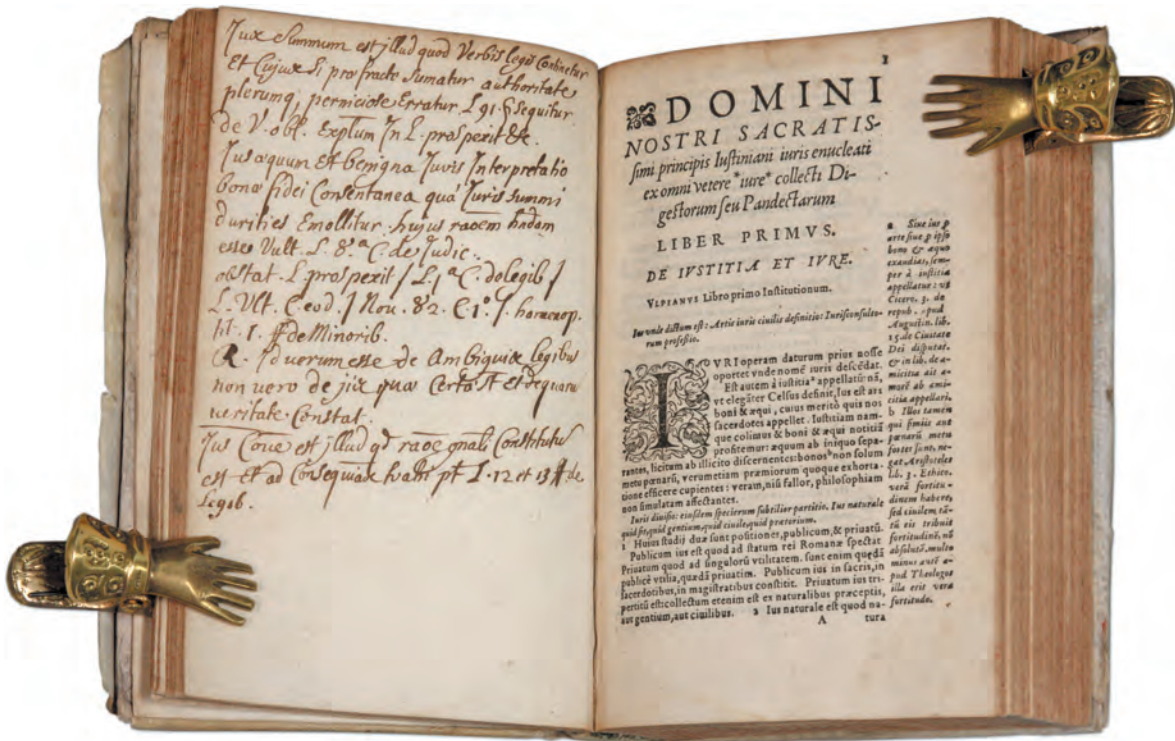 Jus summum est illud quod Verbis legis Continetur
Et Cujus si præfracte sumatur authoritate
plerumq, perniciose Erratur L 91. § sequitur
de V. obl. Explum In L. prospexit &c.
Jus æquum est benigna Juris Interpretatio
bonæ fidei Consentanea quâ Juris summi
durities Emollitur. hujus raõem
esse Vult. L. 8.ª C. de Judic.
obstat. L. prospexit / L. 1ª C. de legib /
L. Ult. C. eod / Nov. 82. C. 1º. /
I. ff de Minorib.
R. Id verum esse de Ambiguis legibus
non vero de
veritate Constat.
Jus est illud qd raõe Constitutu
est Et ad pt L. 12 et 13 ff de
Legib.
1
DOMINI
NOSTRI SACRATIS-
simi principis Iustiniani iuris enucleati
ex omni vetere *iure* collecti Di-
gestorum seu Pandectarum
LIBER PRIMVS.
DE IVSTITIA ET IVRE.
VLPIANVS Libro primo Institutionum.
Ius vnde dictum est: Artis iuris ciuilis definitio: Iurisconsulto-
rum professio.
IVRI operam daturum prius nosse
oportet vnde nomẽ iuris descẽdat.
Est autem à iustitia ᵃ appellatũ: nã,
vt elegãter Celsus definit, Ius est ars
boni & æqui, cuius meritò quis nos
sacerdotes appellet. Iustitiam nam-
que colimus & boni & æqui notitiã
profitemur: æquum ab iniquo sepa-
rantes, licitum ab illicito discernentes: bonos ᵇ non solum
metu pœnarũ, verumetiam præmiorum quoque exhorta-
tione efficere cupientes: veram, nisi fallor, philosophiam
non simulatam affectantes.
Iuris diuisio: eiusdem specierum subtilior partitio. Ius naturale
quid sit, quid gentium, quid ciuile, quid prætorium.
1 Huius studij duæ sunt positiones, publicum, & priuatũ.
Publicum ius est quod ad statum rei Romanæ spectat
Priuatum quod ad singulorũ vtilitatem. sunt enim quędã
publicè vtilia, quædã priuatim. Publicum ius in sacris, in
sacerdotibus, in magistratibus constitit. Priuatum ius tri-
pertitũ est: collectum etenim est ex naturalibus præceptis,
aut gentium, aut ciuilibus. 2 Ius naturale est quod na-
A tura
a Siue ius p
arte siue p ipso
bono & æquo
exaudias, sem-
per à iustitia
appellatur: vt
Cicero. 3. de
repub. apud
Augustin. lib.
15 de Ciuitate
Dei disputat.
& in lib. de a-
micitia ait a-
morẽ ab ami-
citia appellari.
b Illos tamen
qui præmiis aut
pœnarũ metu
fortes sunt, ne-
gat Aristoteles
lib. 3. Ethico.
verã fortitu-
dinem habere,
sed ciuilem tã-
tũ eis tribuit
fortitudinẽ, nõ
absolutã. multo
minus autẽ a-
pud Theologos
illa erit vera
fortitudo.